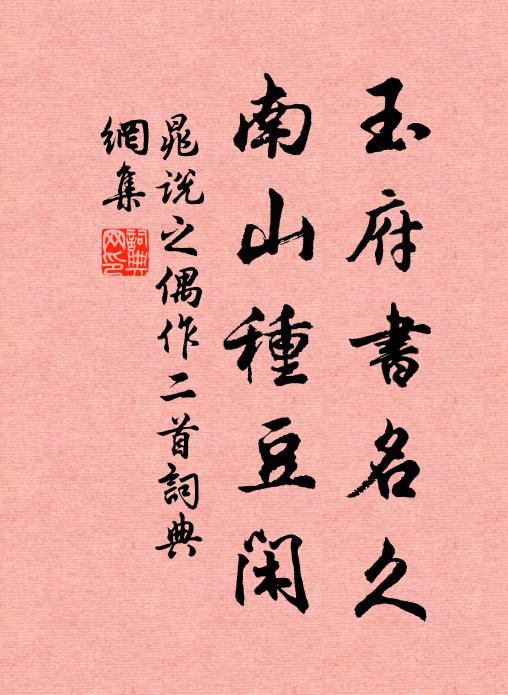 玉府書名久
南山種豆閑
晁說之偶作二首詞典
網集
詞典
网印